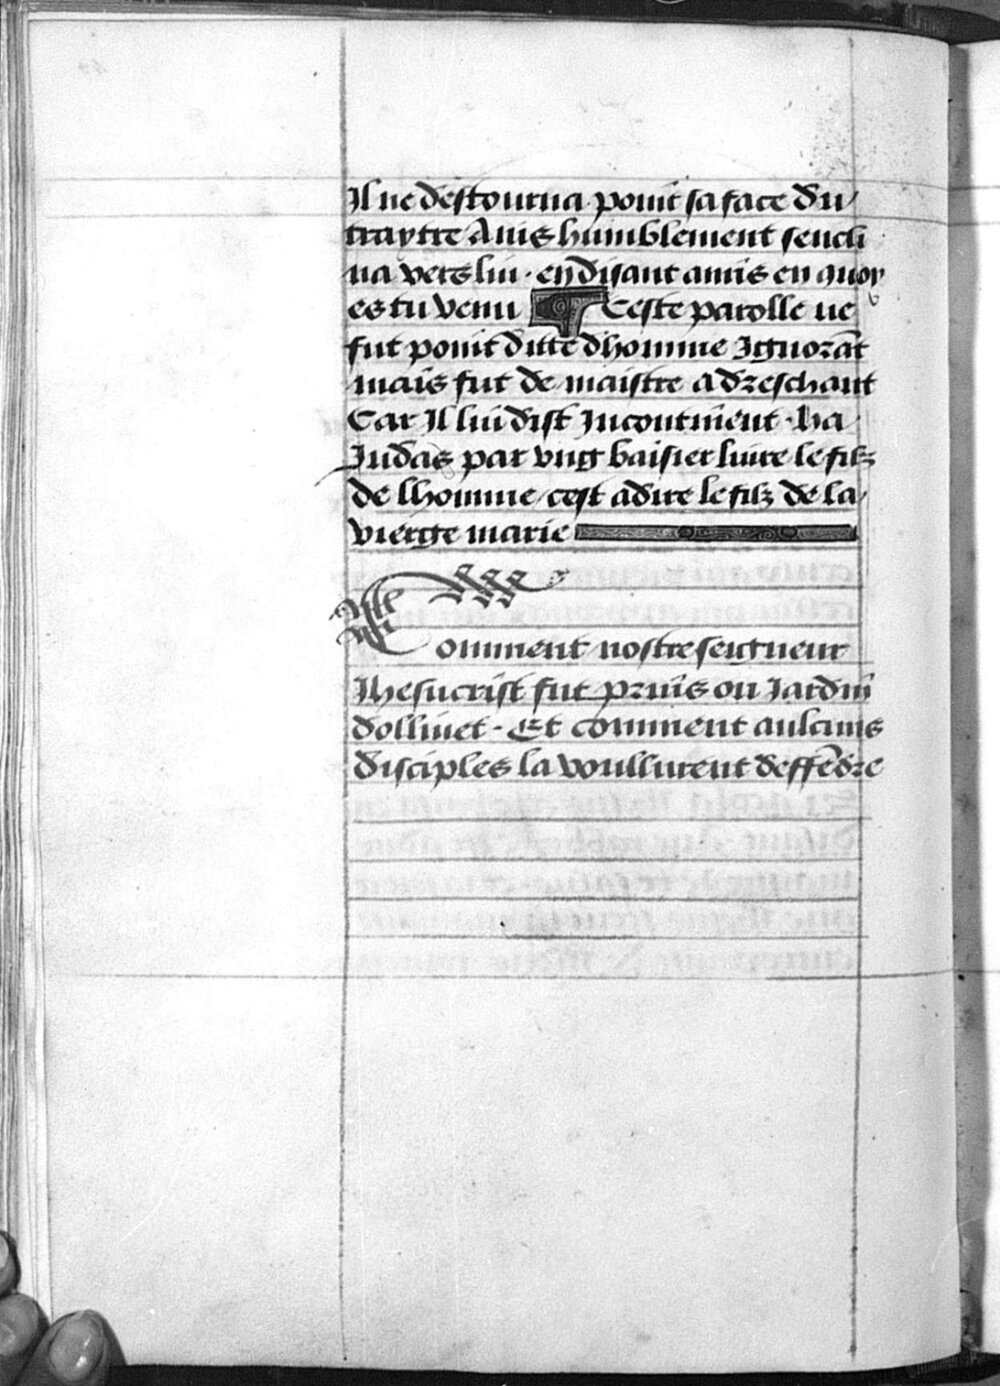 Il ne destourna point sa face du
traytre Ains humblement sencli
na vers lui · en disant amis en quoy
es tu venu Ceste parolle ne
fut point ditte dhomme Ignorāt
mais fut de maistre adreschant
Car Il lui dist Incontinent · ha
Judas par ung baisier livre le filz
de lhomme / cest adire le filz de la
vierge marie
Comment nostre seigneur
Ihesucrist fut prins ou Jardin
dollivet · Et comment aulcuns
disciples la voullurent deffēdre